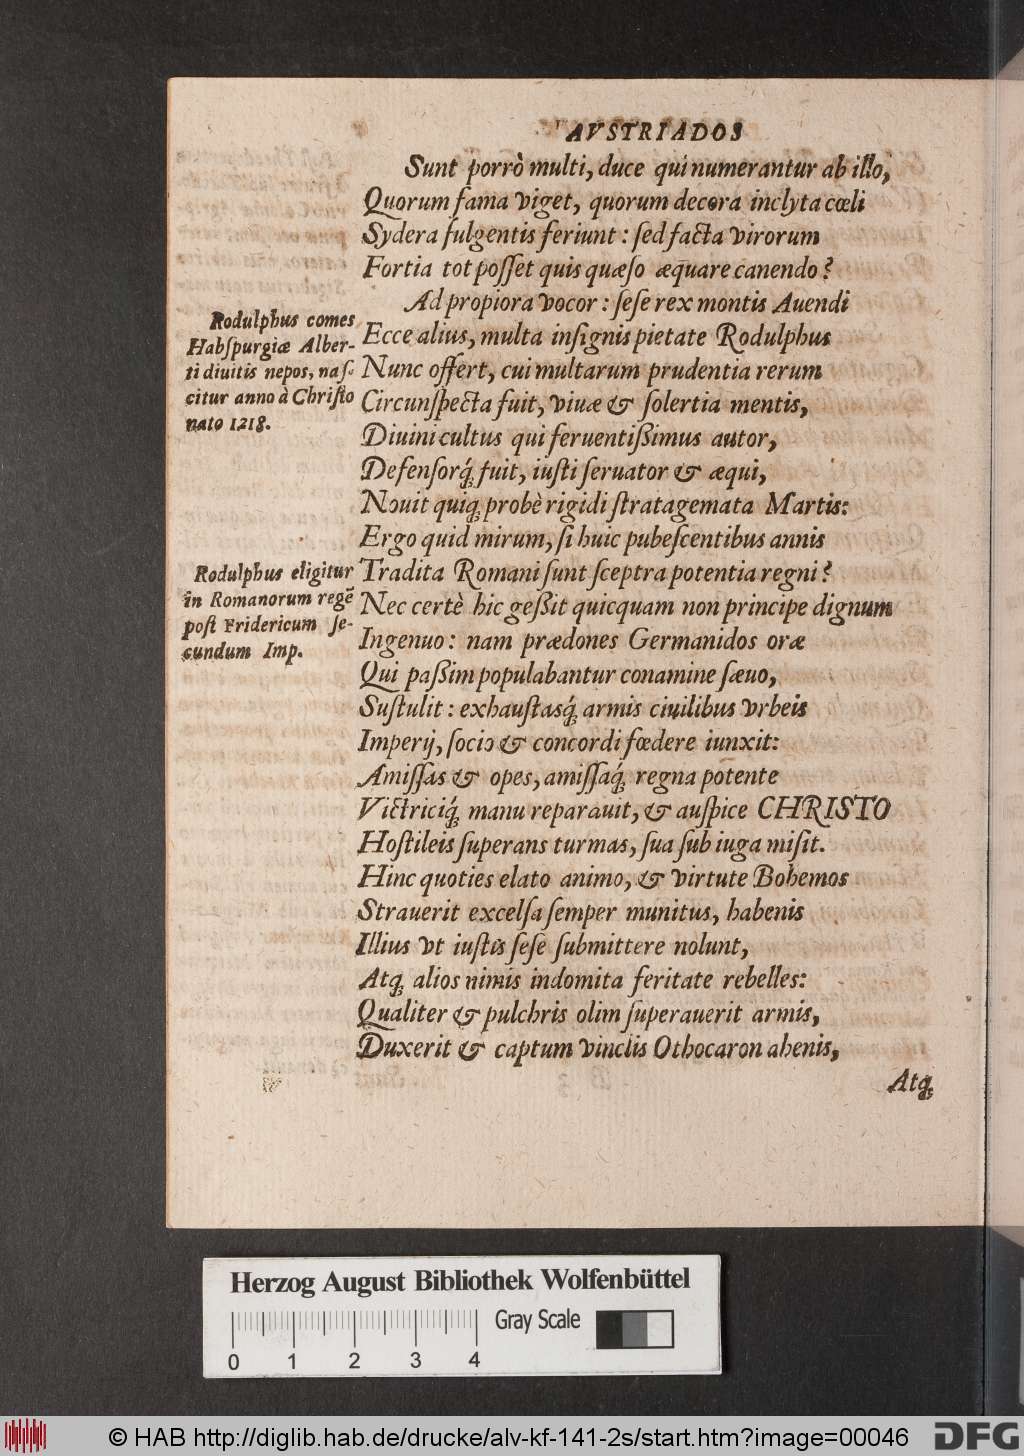 AVSTRIADOS
Sunt porrò multi, duce qui numerantur ab illo,
Quorum fama viget, quorum decora inclyta cœli
Sydera fulgentis feriunt: ſed facta virorum
Fortia tot poſſet quis quæſo æquare canendo?
Ad propiora vocor: ſeſe rex montis Auendi
Ecce alius, multa inſignis pietate Rodulphus
Nunc offert, cui multarum prudentia rerum
Circunſpecta fuit, viuæ & ſolertia mentis,
Diuini cultus qui feruentißimus autor,
Defenſorq́; fuit, iuſti ſeruator & æqui,
Nouit quiq; probè rigidi ſtratagemata Martis:
Ergo quid mirum, ſi huic pubeſcentibus annis
Tradita Romani ſunt ſceptra potentia regni?
Nec certè hic geßit quicquam non principe dignum
Ingenuo: nam prædones Germanidos oræ
Qui paßim populabantur conamine ſæuo,
Suſtulit: exhauſtasq́; armis ciuilibus vrbeis
Imperij, ſocio & concordi fœdere iunxit:
Amiſſas & opes, amiſſaq́; regna potente
Victriciq́; manu reparauit, & auſpice CHRISTO
Hoſtileis ſuperans turmas, ſua ſub iuga miſit.
Hinc quoties elato animo, & virtute Bohemos
Strauerit excelſa ſemper munitus, habenis
Illius vt iuſtis ſeſe ſubmittere nolunt,
Atq; alios nimis indomita feritate rebelles:
Qualiter & pulchris olim ſuperauerit armis,
Duxerit & captum vinclis Othocaron ahenis,
Atq;
Rodulphus comes
Habſpurgiæ Alber-
ti diuitis nepos, naſ-
citur anno à Chriſto
nato 1218.
Rodulphus eligitur
in Romanorum regē
poſt Fridericum ſe-
cundum Imp.
Herzog August Bibliothek Wolfenbüttel
Gray Scale
0 1 2 3 4
© HAB http://diglib.hab.de/drucke/alv-kf-141-2s/start.htm?image=00046
DFG